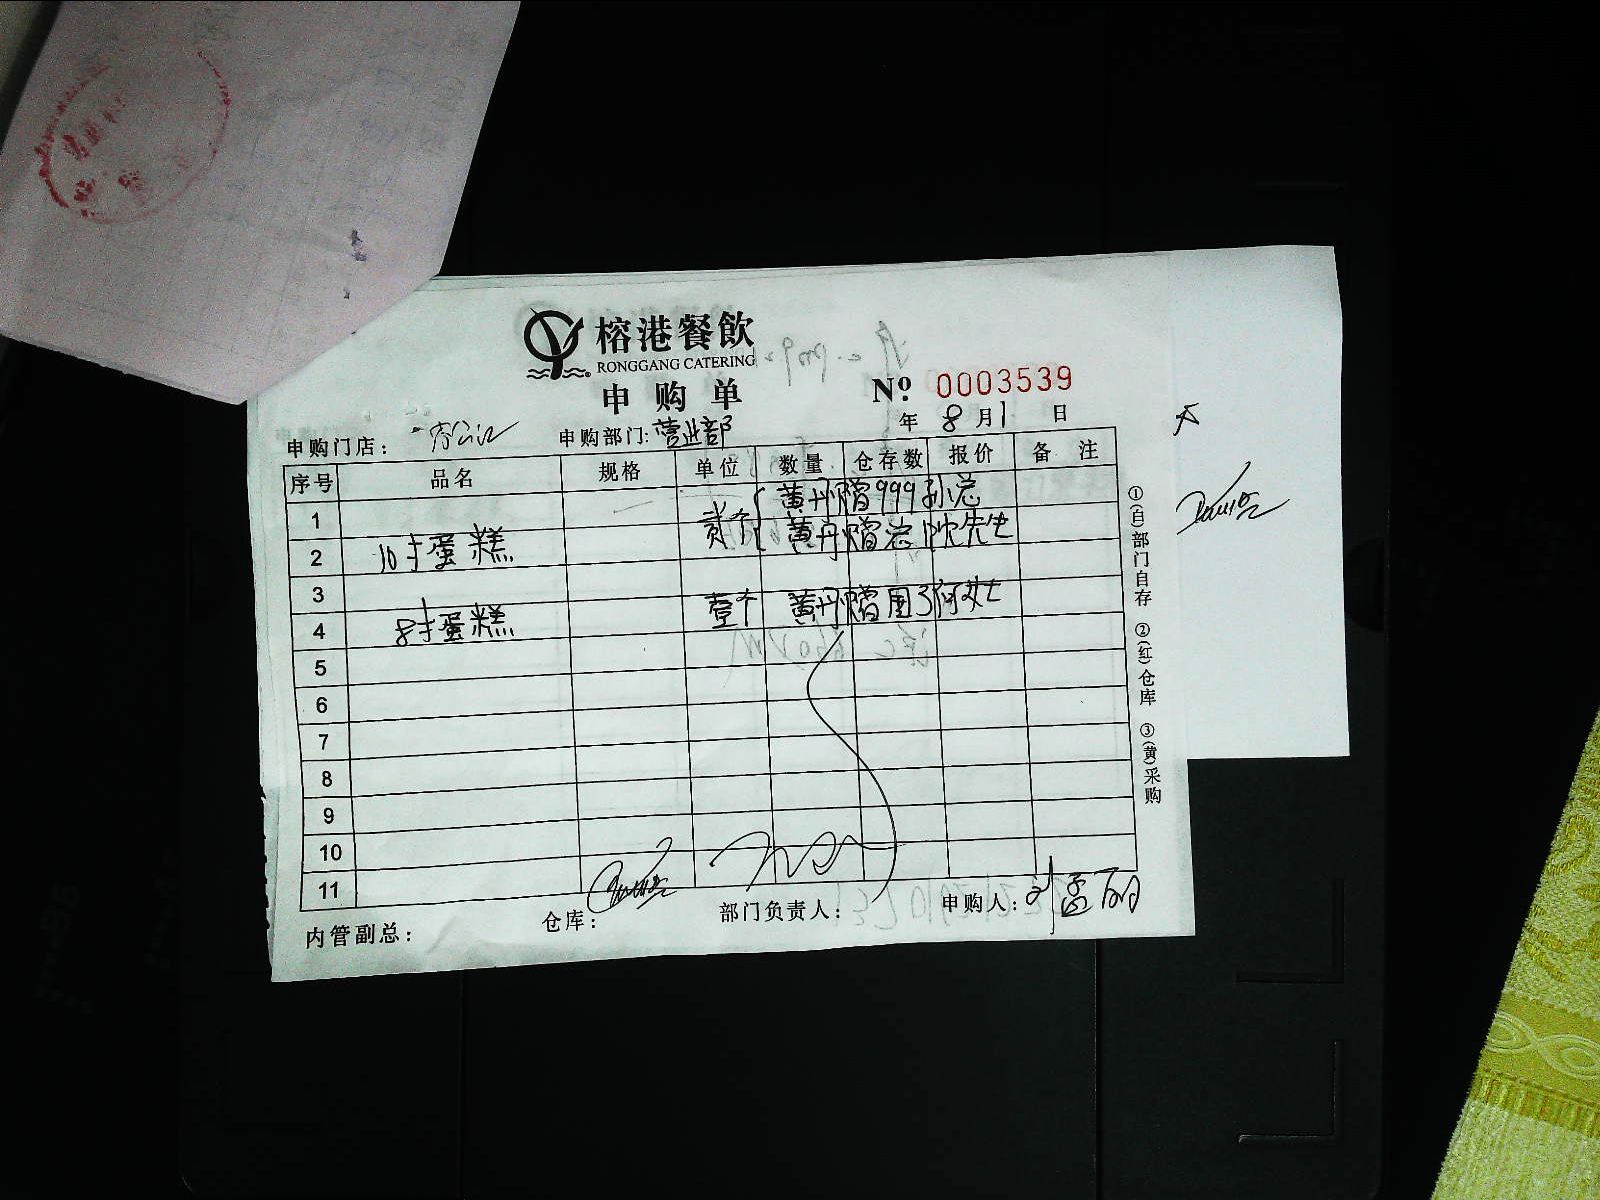 榕港餐飲
RONGGANG CATERING
申购单
Nº 0003539
年 8 月 1 日
申购门店:
申购部门: 营业部
序号 品名 规格 单位 数量 仓存数 报价 备注
1 黄丹赠999孙总
2 10寸蛋糕 贰个 黄丹赠 沈先生
3
4 8寸蛋糕 壹个 黄丹赠 何女士
5
6
7
8
9
10
11
内管副总:
仓库:
部门负责人:
申购人: 刘孟丽
①(白)部门自存 ②(红)仓库 ③(黄)采购